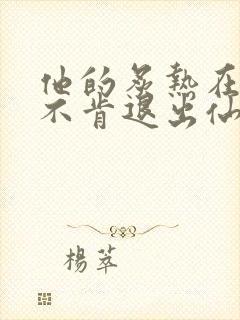 他的炙熱在
不肯退出仙
楊萃